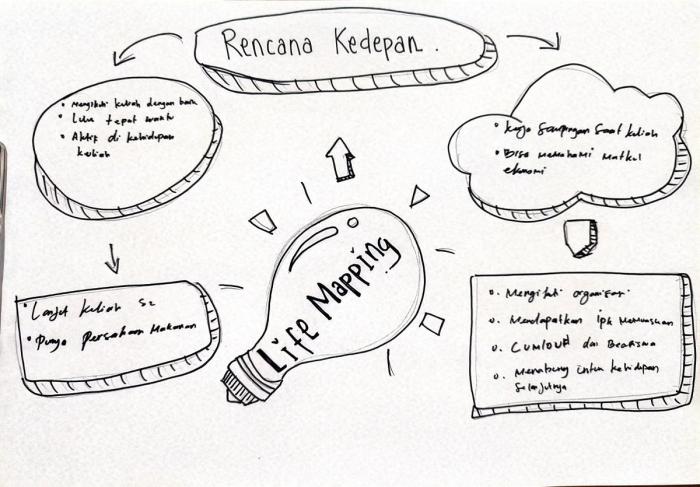 Rencana Kedepan.
• Mengikuti kuliah dengan baik
• Lulus tepat waktu
• Aktif di kehidupan
kuliah
• Kerja Sampingan Saat kuliah
• Bisa memahami matkul
ekonomi
• Lanjut kuliah S2
• Punya Perusahaan Makanan
Life Mapping
o. Mengikuti organisasi
o. Mendapatkan ipk memuaskan
o. CUMLOUR dan Beasiswa
o. Menabung untuk kehidupan
Selanjutnya